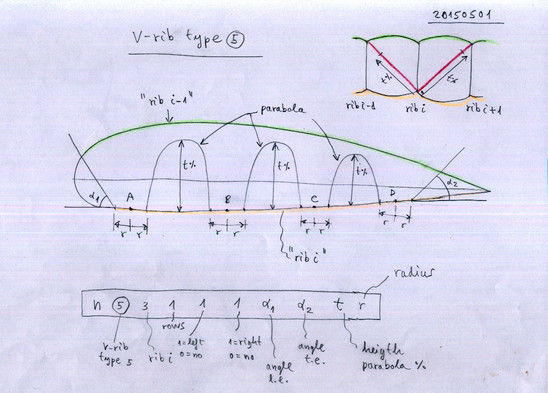 20150501
V-rib type 5
x% x%
rib i-1 rib i rib i+1
"rib i-1"
parabola
t% t% t%
α1 A B C D α2
r r r r r r r r
"rib i"
radius
n 5 3 1 1 1 α1 α2 t r
v-rib type 5
rib i
rows
1=left
0=no
1=right
0=no
angle
l.e.
angle
t.e.
heigth
parabola %